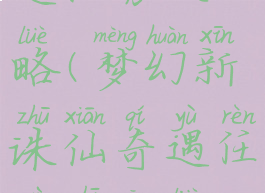 lüè mèng huàn xīn
略(梦幻新
zhū xiān qí yù rèn
诛仙奇遇任